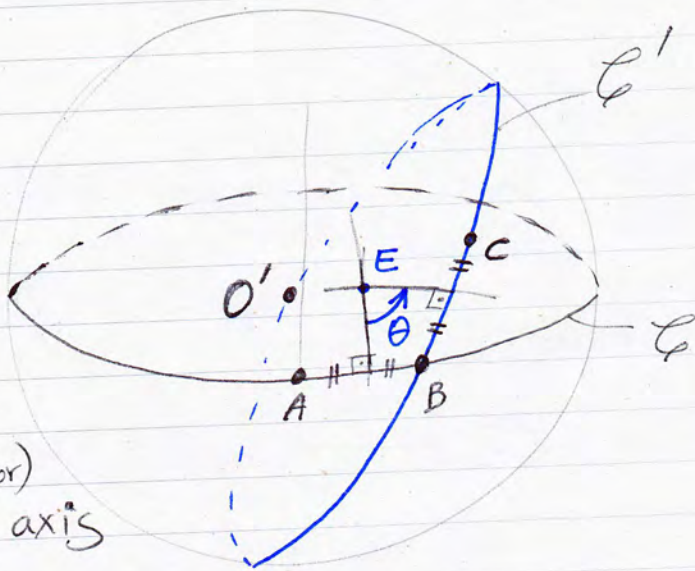 𝒞'
E
O'
C
θ
𝒞
A
B
or)
axis